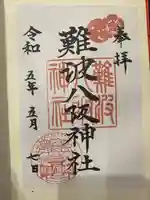 奉拝
難波八阪神社
令和五年五月七日